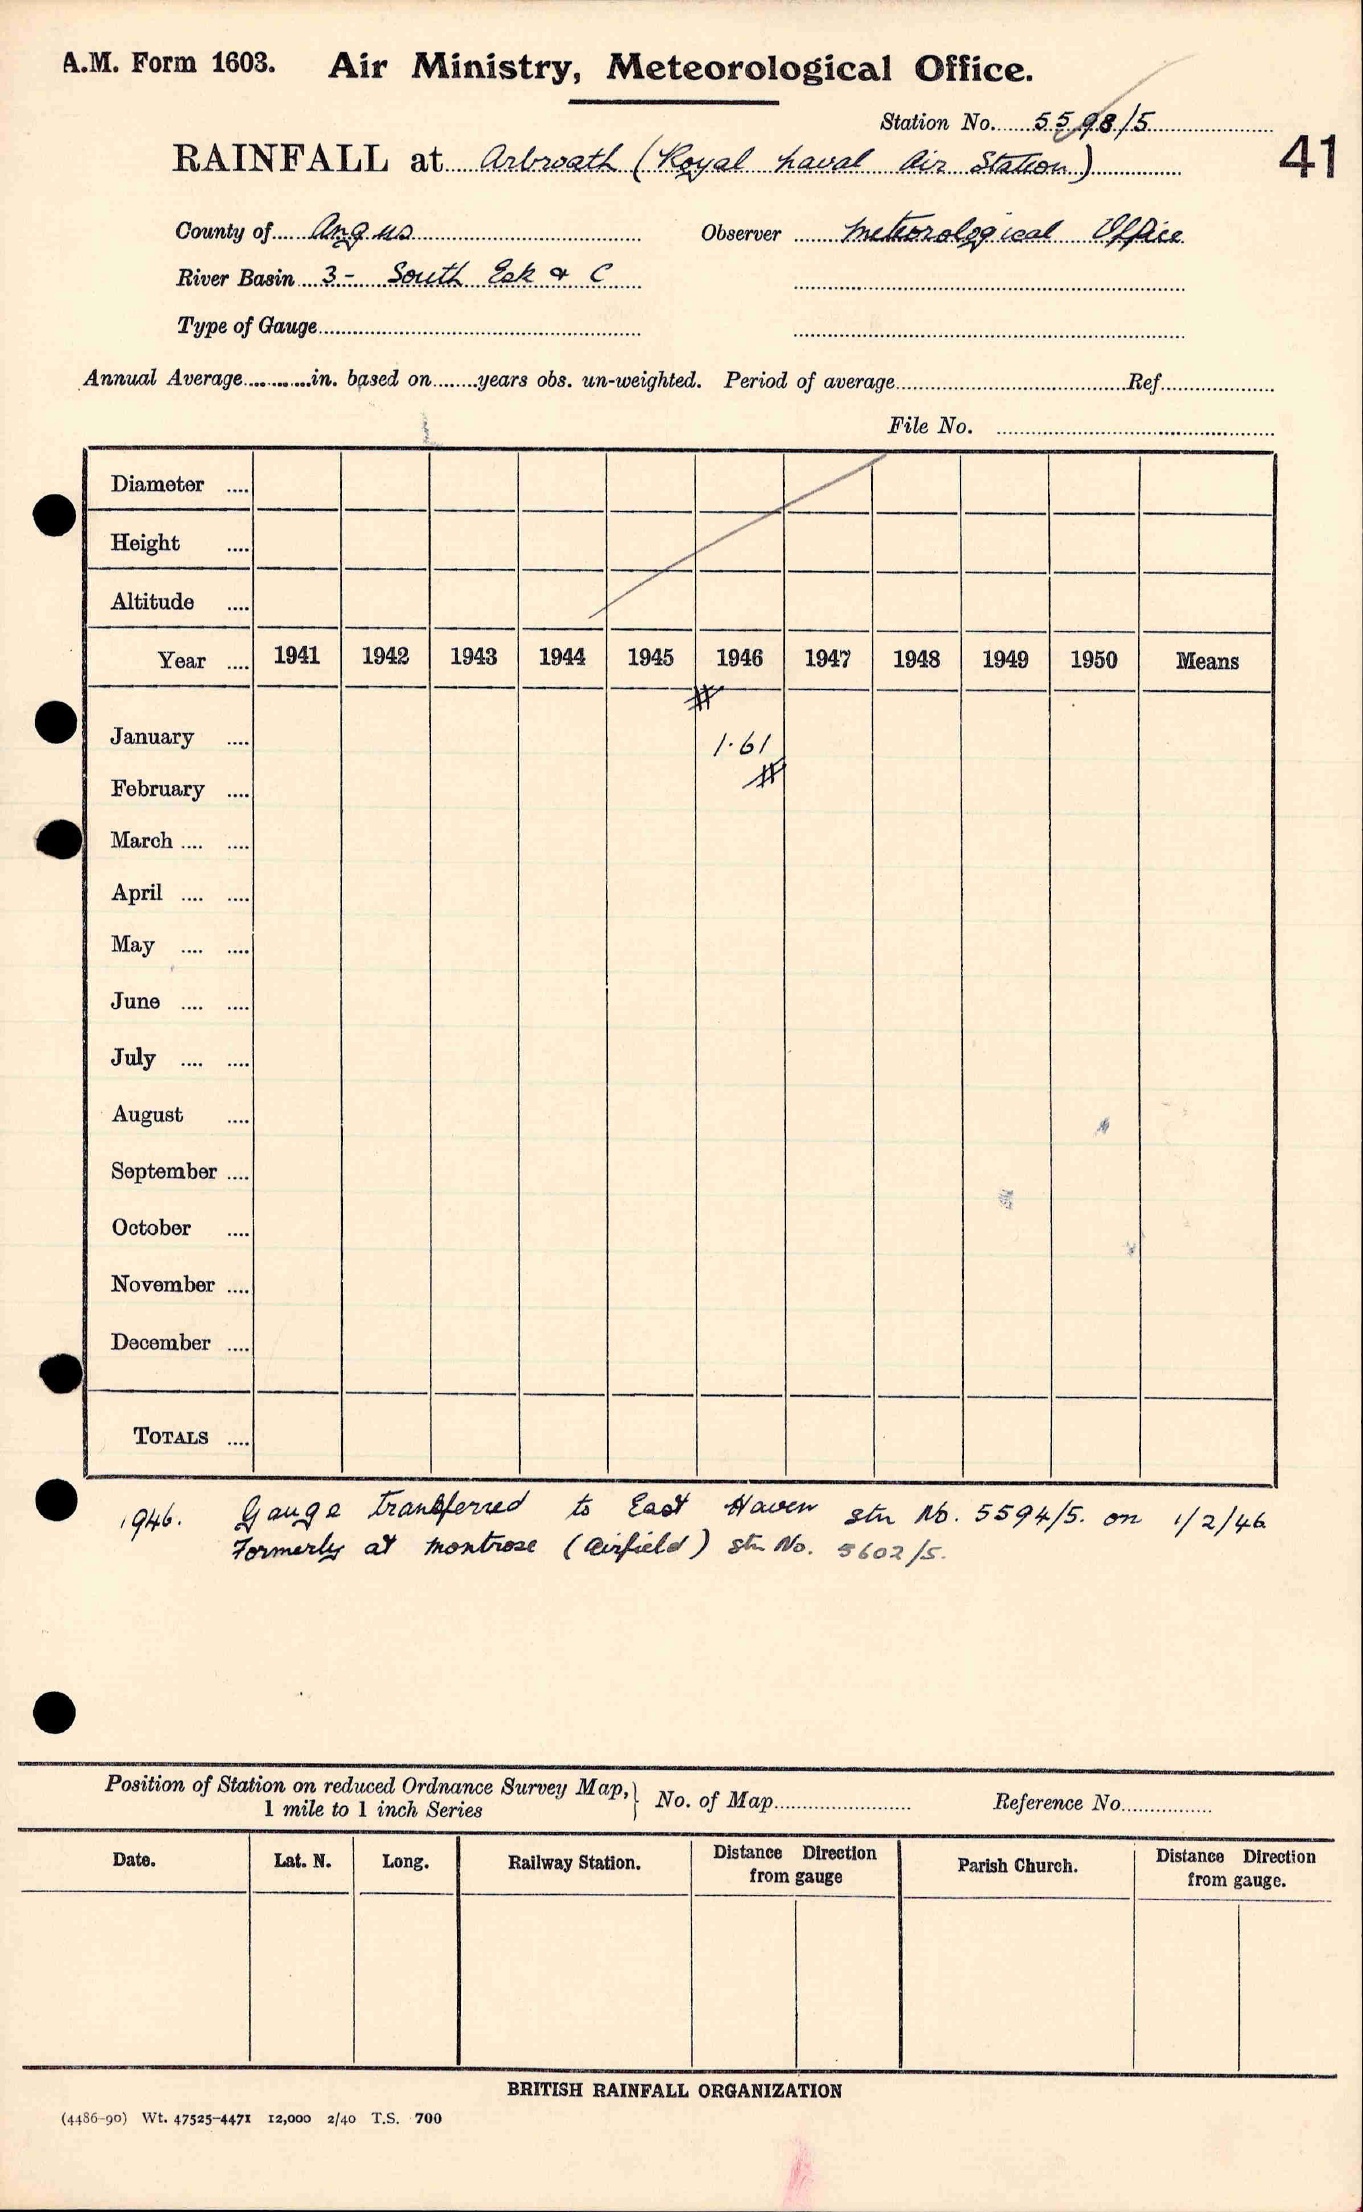 A.M. Form 1603. Air Ministry, Meteorological Office.
Station No. 5598/5
RAINFALL at Arbroath (Royal Naval Air Station)
41
County of Angus Observer Meteorological Office
River Basin 3- South Esk & C
Type of Gauge
Annual Average in. based on years obs. un-weighted. Period of average Ref
File No.
Diameter
Height
Altitude
Year 1941 1942 1943 1944 1945 1946 1947 1948 1949 1950 Means
January 1.61
February
March
April
May
June
July
August
September
October
November
December
TOTALS
1946. Gauge transferred to East Haven stn No. 5594/5. on 1/2/46
Formerly at Montrose (Airfield) stn No. 5602/5.
Position of Station on reduced Ordnance Survey Map, 1 mile to 1 inch Series } No. of Map Reference No.
Date. Lat. N. Long. Railway Station. Distance Direction from gauge Parish Church. Distance Direction from gauge.
BRITISH RAINFALL ORGANIZATION
(4486-90) Wt. 47525-4471 12,000 2/40 T.S. 700